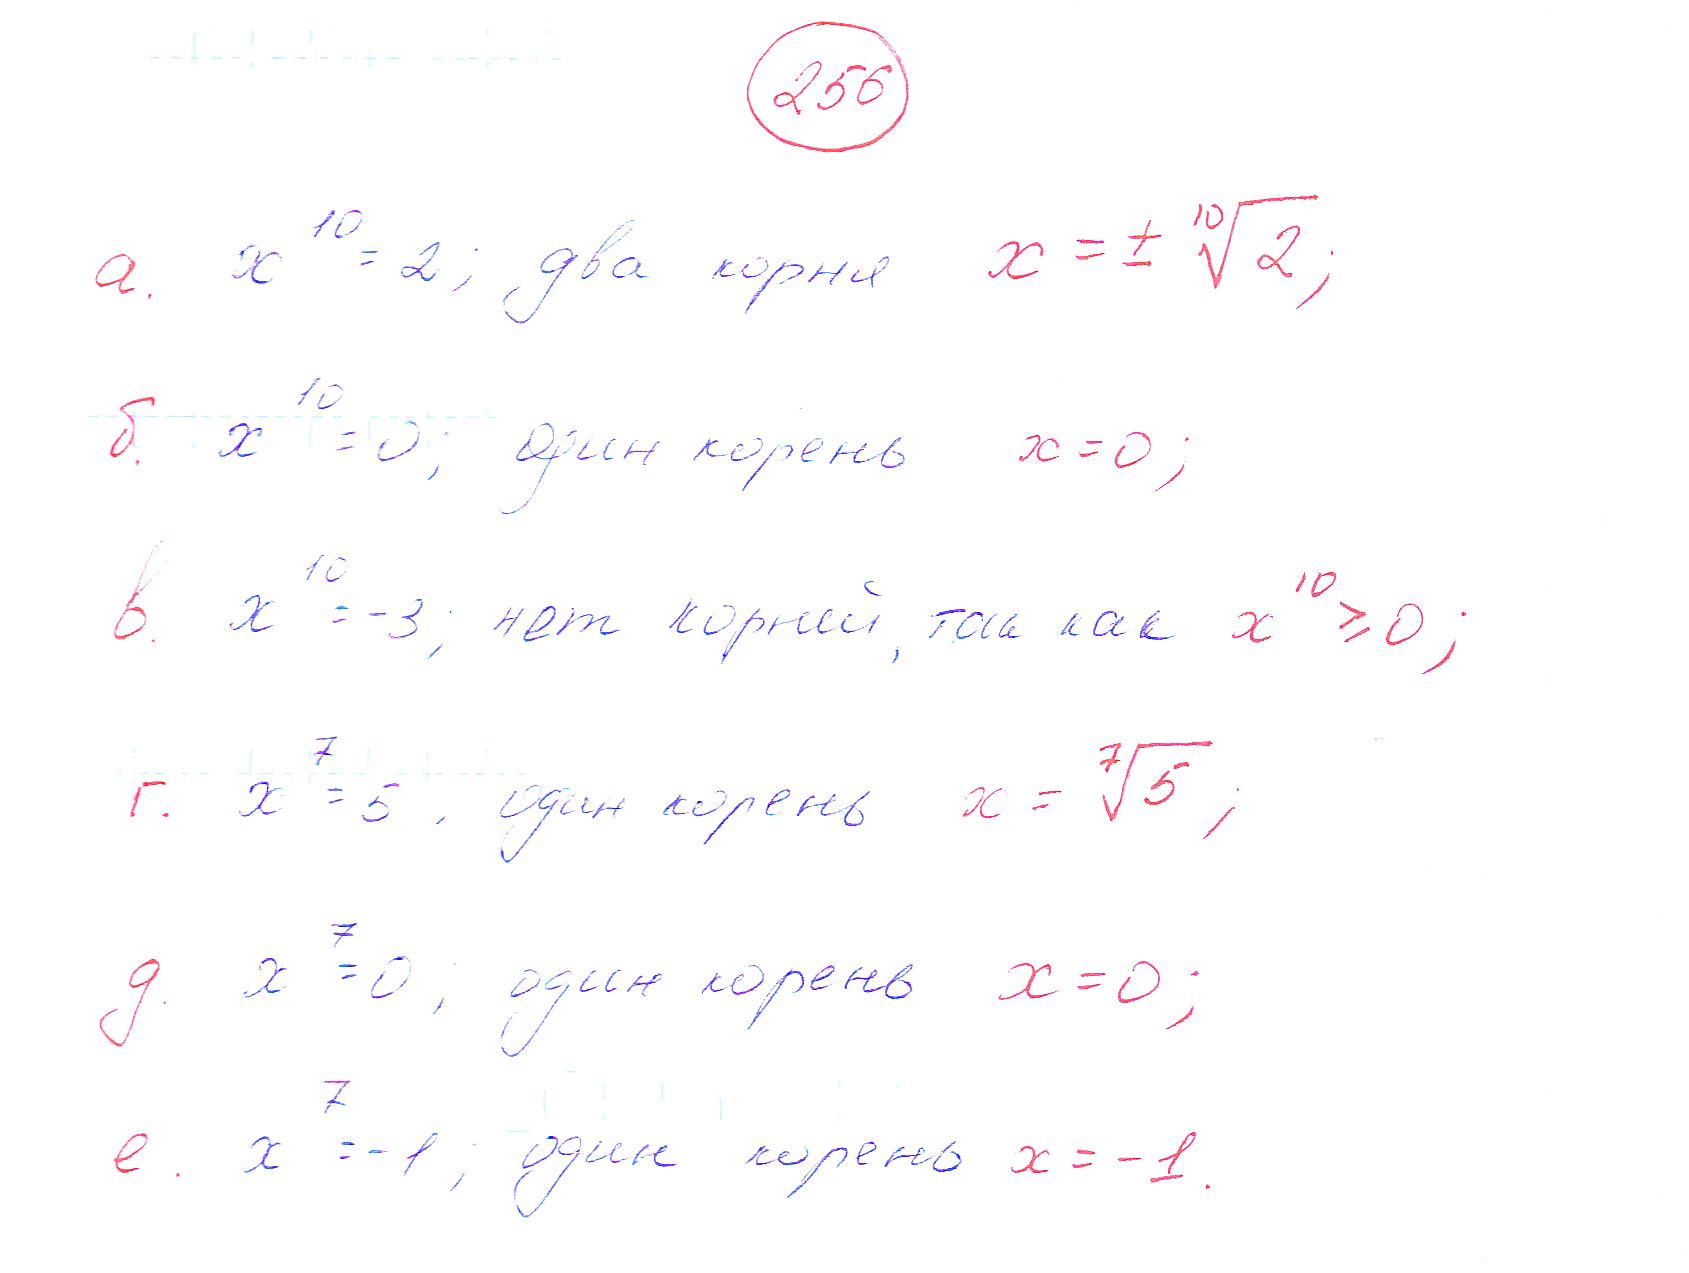 256
а. x¹⁰ = 2; два корня x = ± ¹⁰√2;
б. x¹⁰ = 0; один корень x = 0;
в. x¹⁰ = -3; нет корней, так как x¹⁰ ≥ 0;
г. x⁷ = 5, один корень x = ⁷√5;
д. x⁷ = 0; один корень x = 0;
е. x⁷ = -1; один корень x = -1.